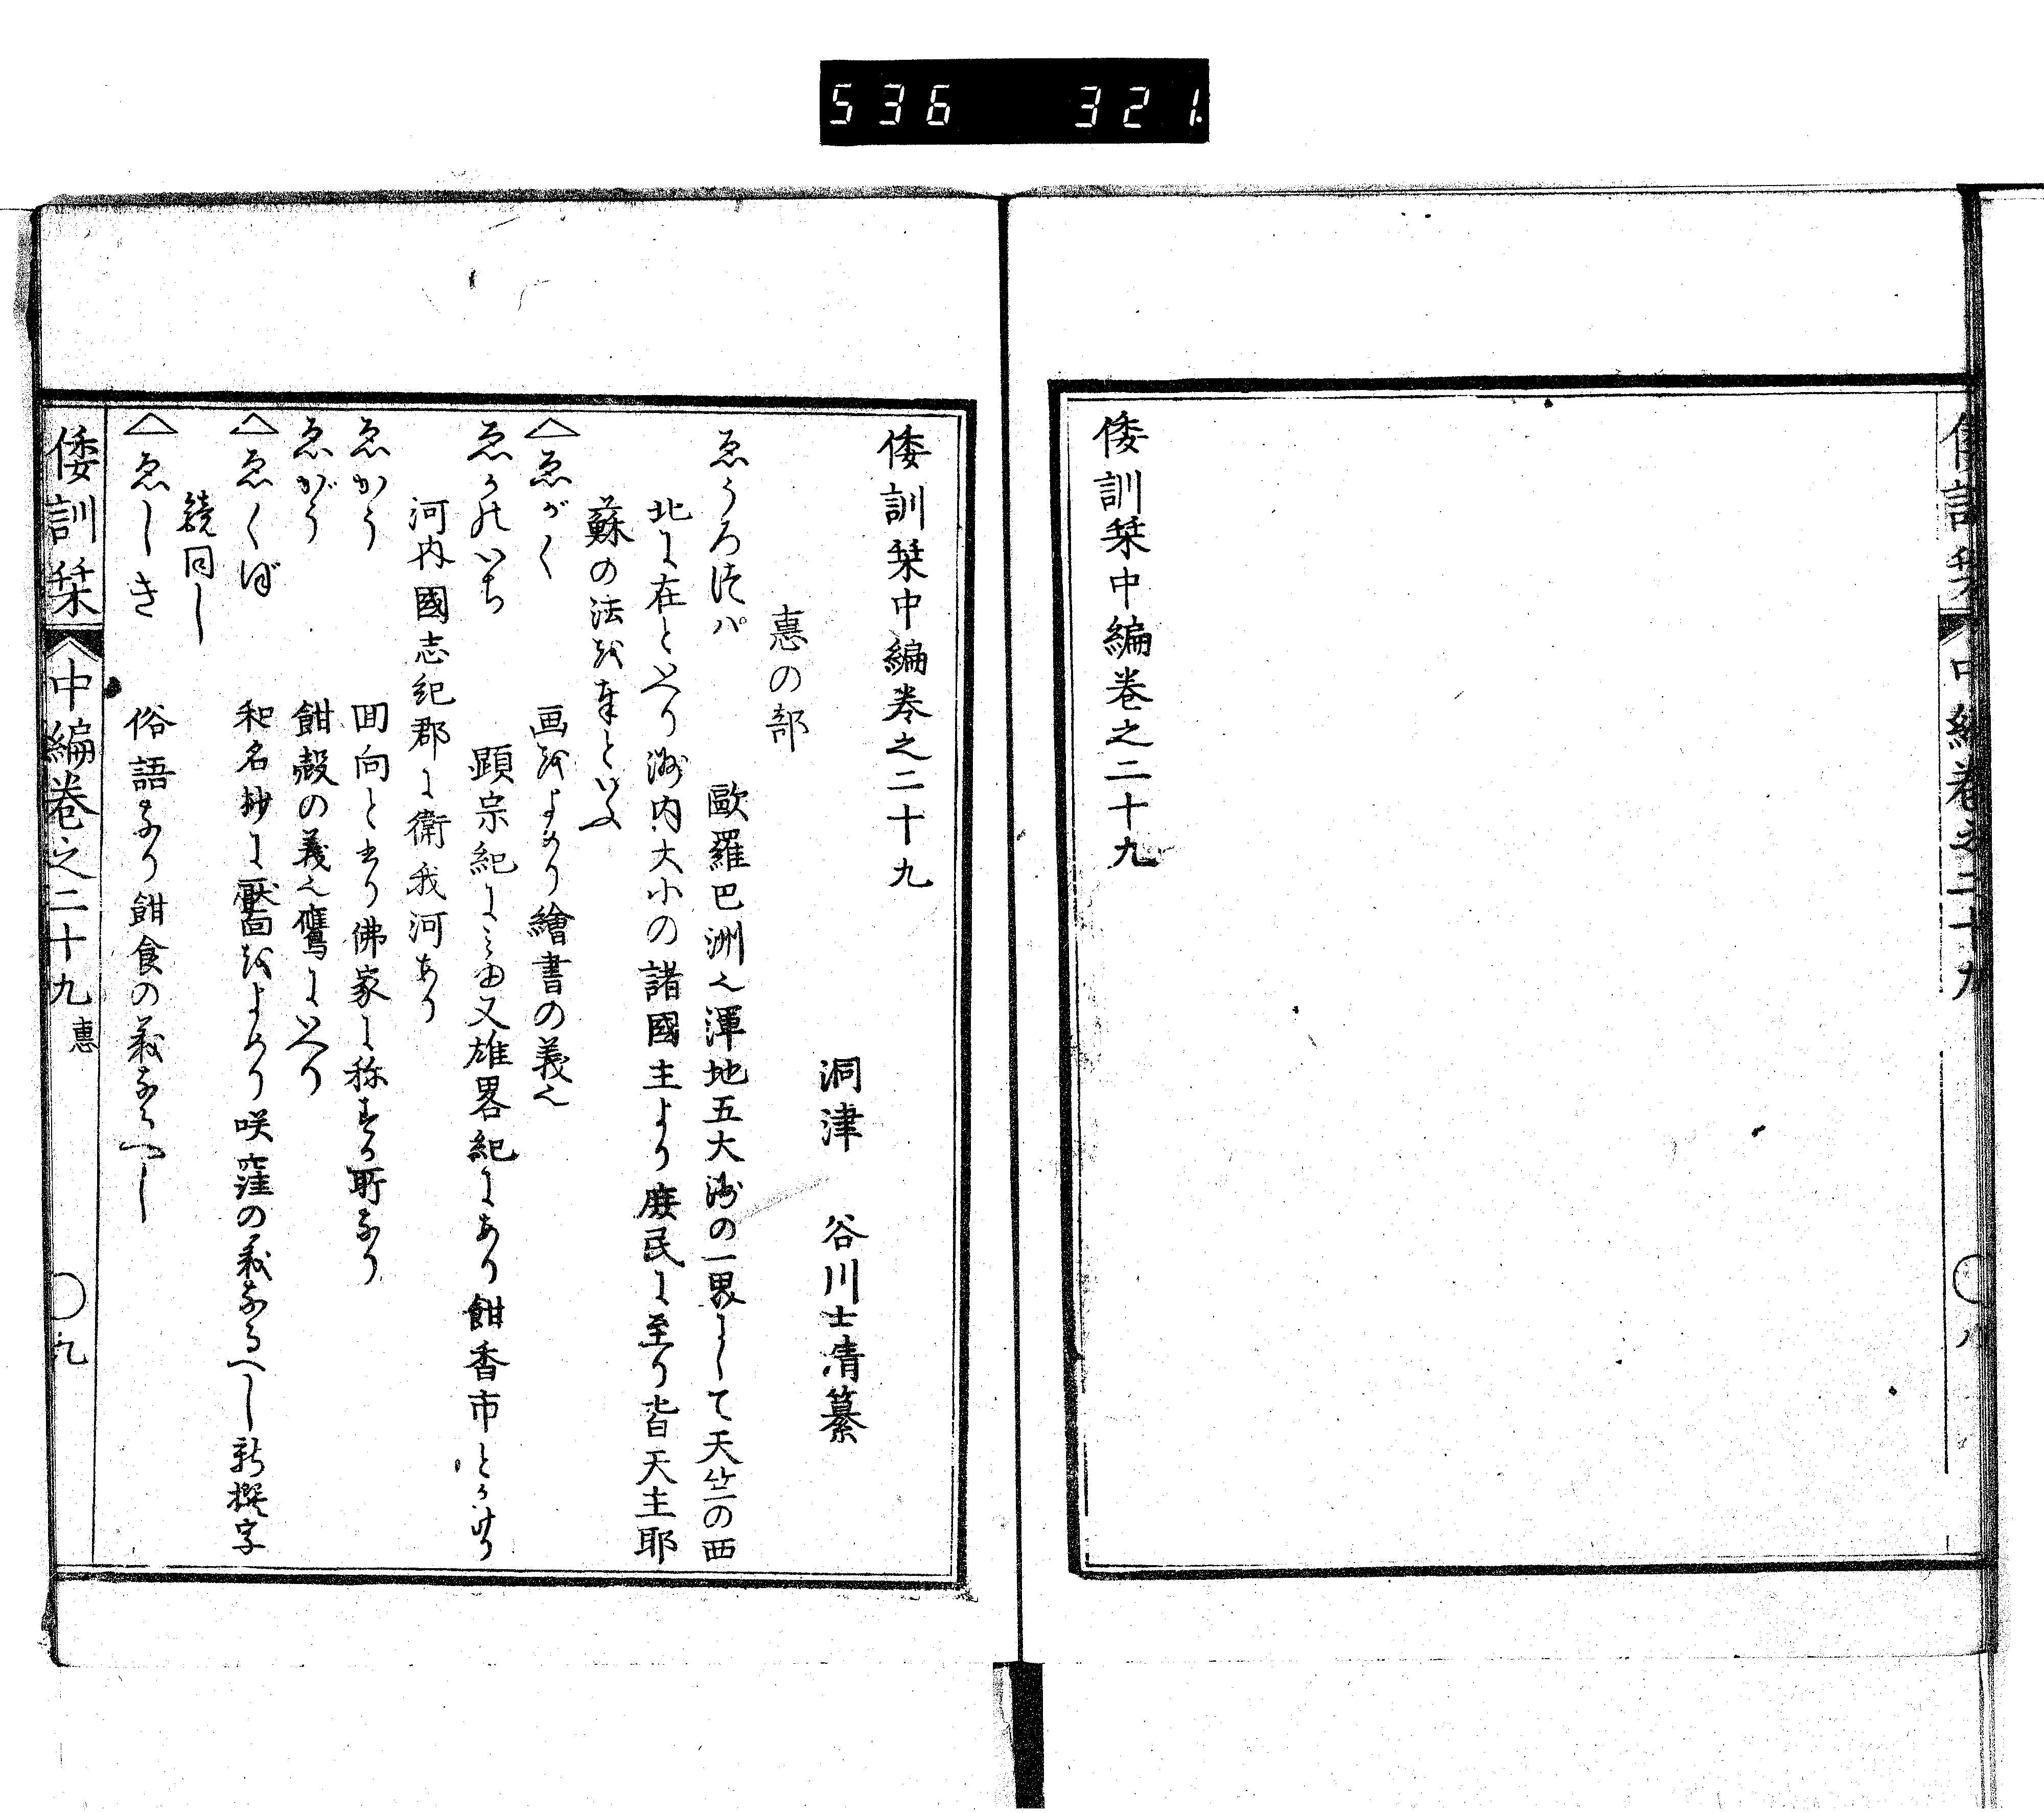 536 321.
倭訓栞中編巻之二十九
倭訓栞中編巻之二十九
洞津 谷川士清纂
惠の部
ゑうろつパ 歐羅巴洲也渾地五大洲の一界にして天竺の西
北に在といへり洲内大小の諸國主より庶民に至り皆天主耶
蘇の法を奉といふ
△ゑがく 画をよめり繪書の義也
ゑかのいち 顕宗紀にみゆ又雄畧紀にあり餌香市とかけり
河内國志紀郡に衛我河あり
ゑかう 回向と書り佛家に称する所なり
ゑがう 餌殻の義也鷹にいへり
△ゑくぼ 和名抄に靨をよめり咲窪の義なるへし新撰字
鏡同し
△ゑしき 俗語なり餌食の義なるへし
倭訓栞 中編巻之二十九 惠 〇九